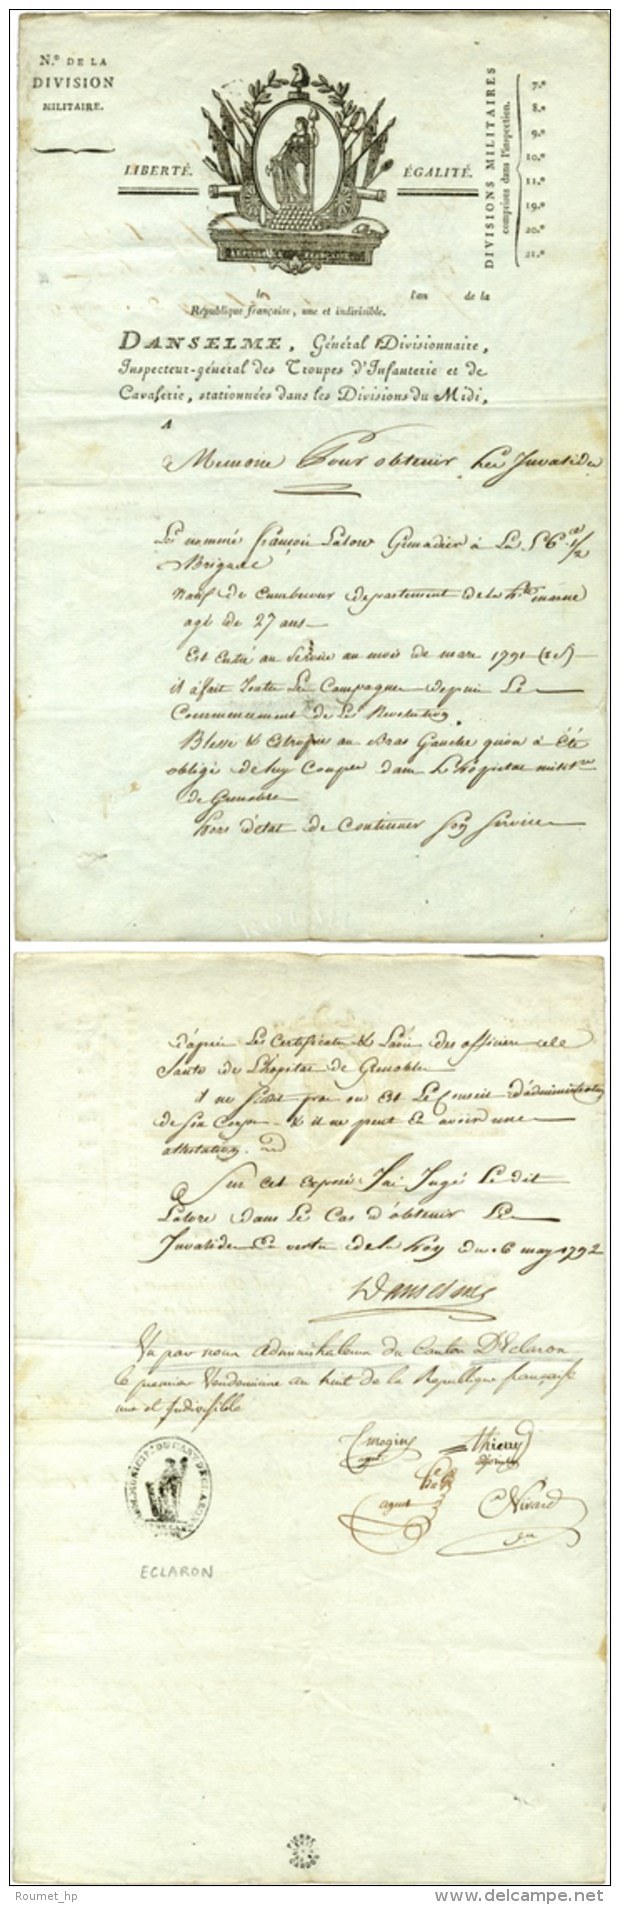 N.º DE LA
DIVISION
MILITAIRE.
LIBERTÉ.
ÉGALITÉ.
DIVISIONS MILITAIRES
comprises dans l'inspection.
7.e
8.e
9.e
10.e
11.e
19.e
20.e
21.e
le l'an de la
République française, une et indivisible.
DANSELME, Général Divisionnaire,
Inspecteur-général des Troupes d'Infanterie et de
Cavalerie, stationnées dans les Divisions du Midi,
A
Memoire Pour obtenir Les Invalides
Le nommé françois Latore Grenadier à La 56.e 1/2
Brigade
Natif de departement de la h.te marne
agé de 27 ans
Est Entré au Service au mois de mars 1791
il a fait toutes Les Campagnes depuis Le
Commencement de La Revolution
Blessé & Estropié au Bras Gauche qu'on à été
obligé de luy Couper dans L'hopital militre
de Grenoble
hors d'état de Continuer Son Service
d'aprés Les Certificats & des officiers de
Santé de L'hopital de Grenoble
il ne Sait pas ou Est Le Conseil d'administration
de Son Corps & il ne peut En avoir une
attestation.
Sur cet exposé J'ai Jugé Le dit
Latore dans Le Cas d'obtenir Les
Invalides En vertu de la Loy du 6 may 1792
Danselme
Vu par nous administrateurs du Canton D'Eclaron
le premier Vendemiaire an huit de la Republique française
une et Indivisible
thieny
adjoint
agent
Nivard
ECLARON
Roumet_hp
www.delcampe.net